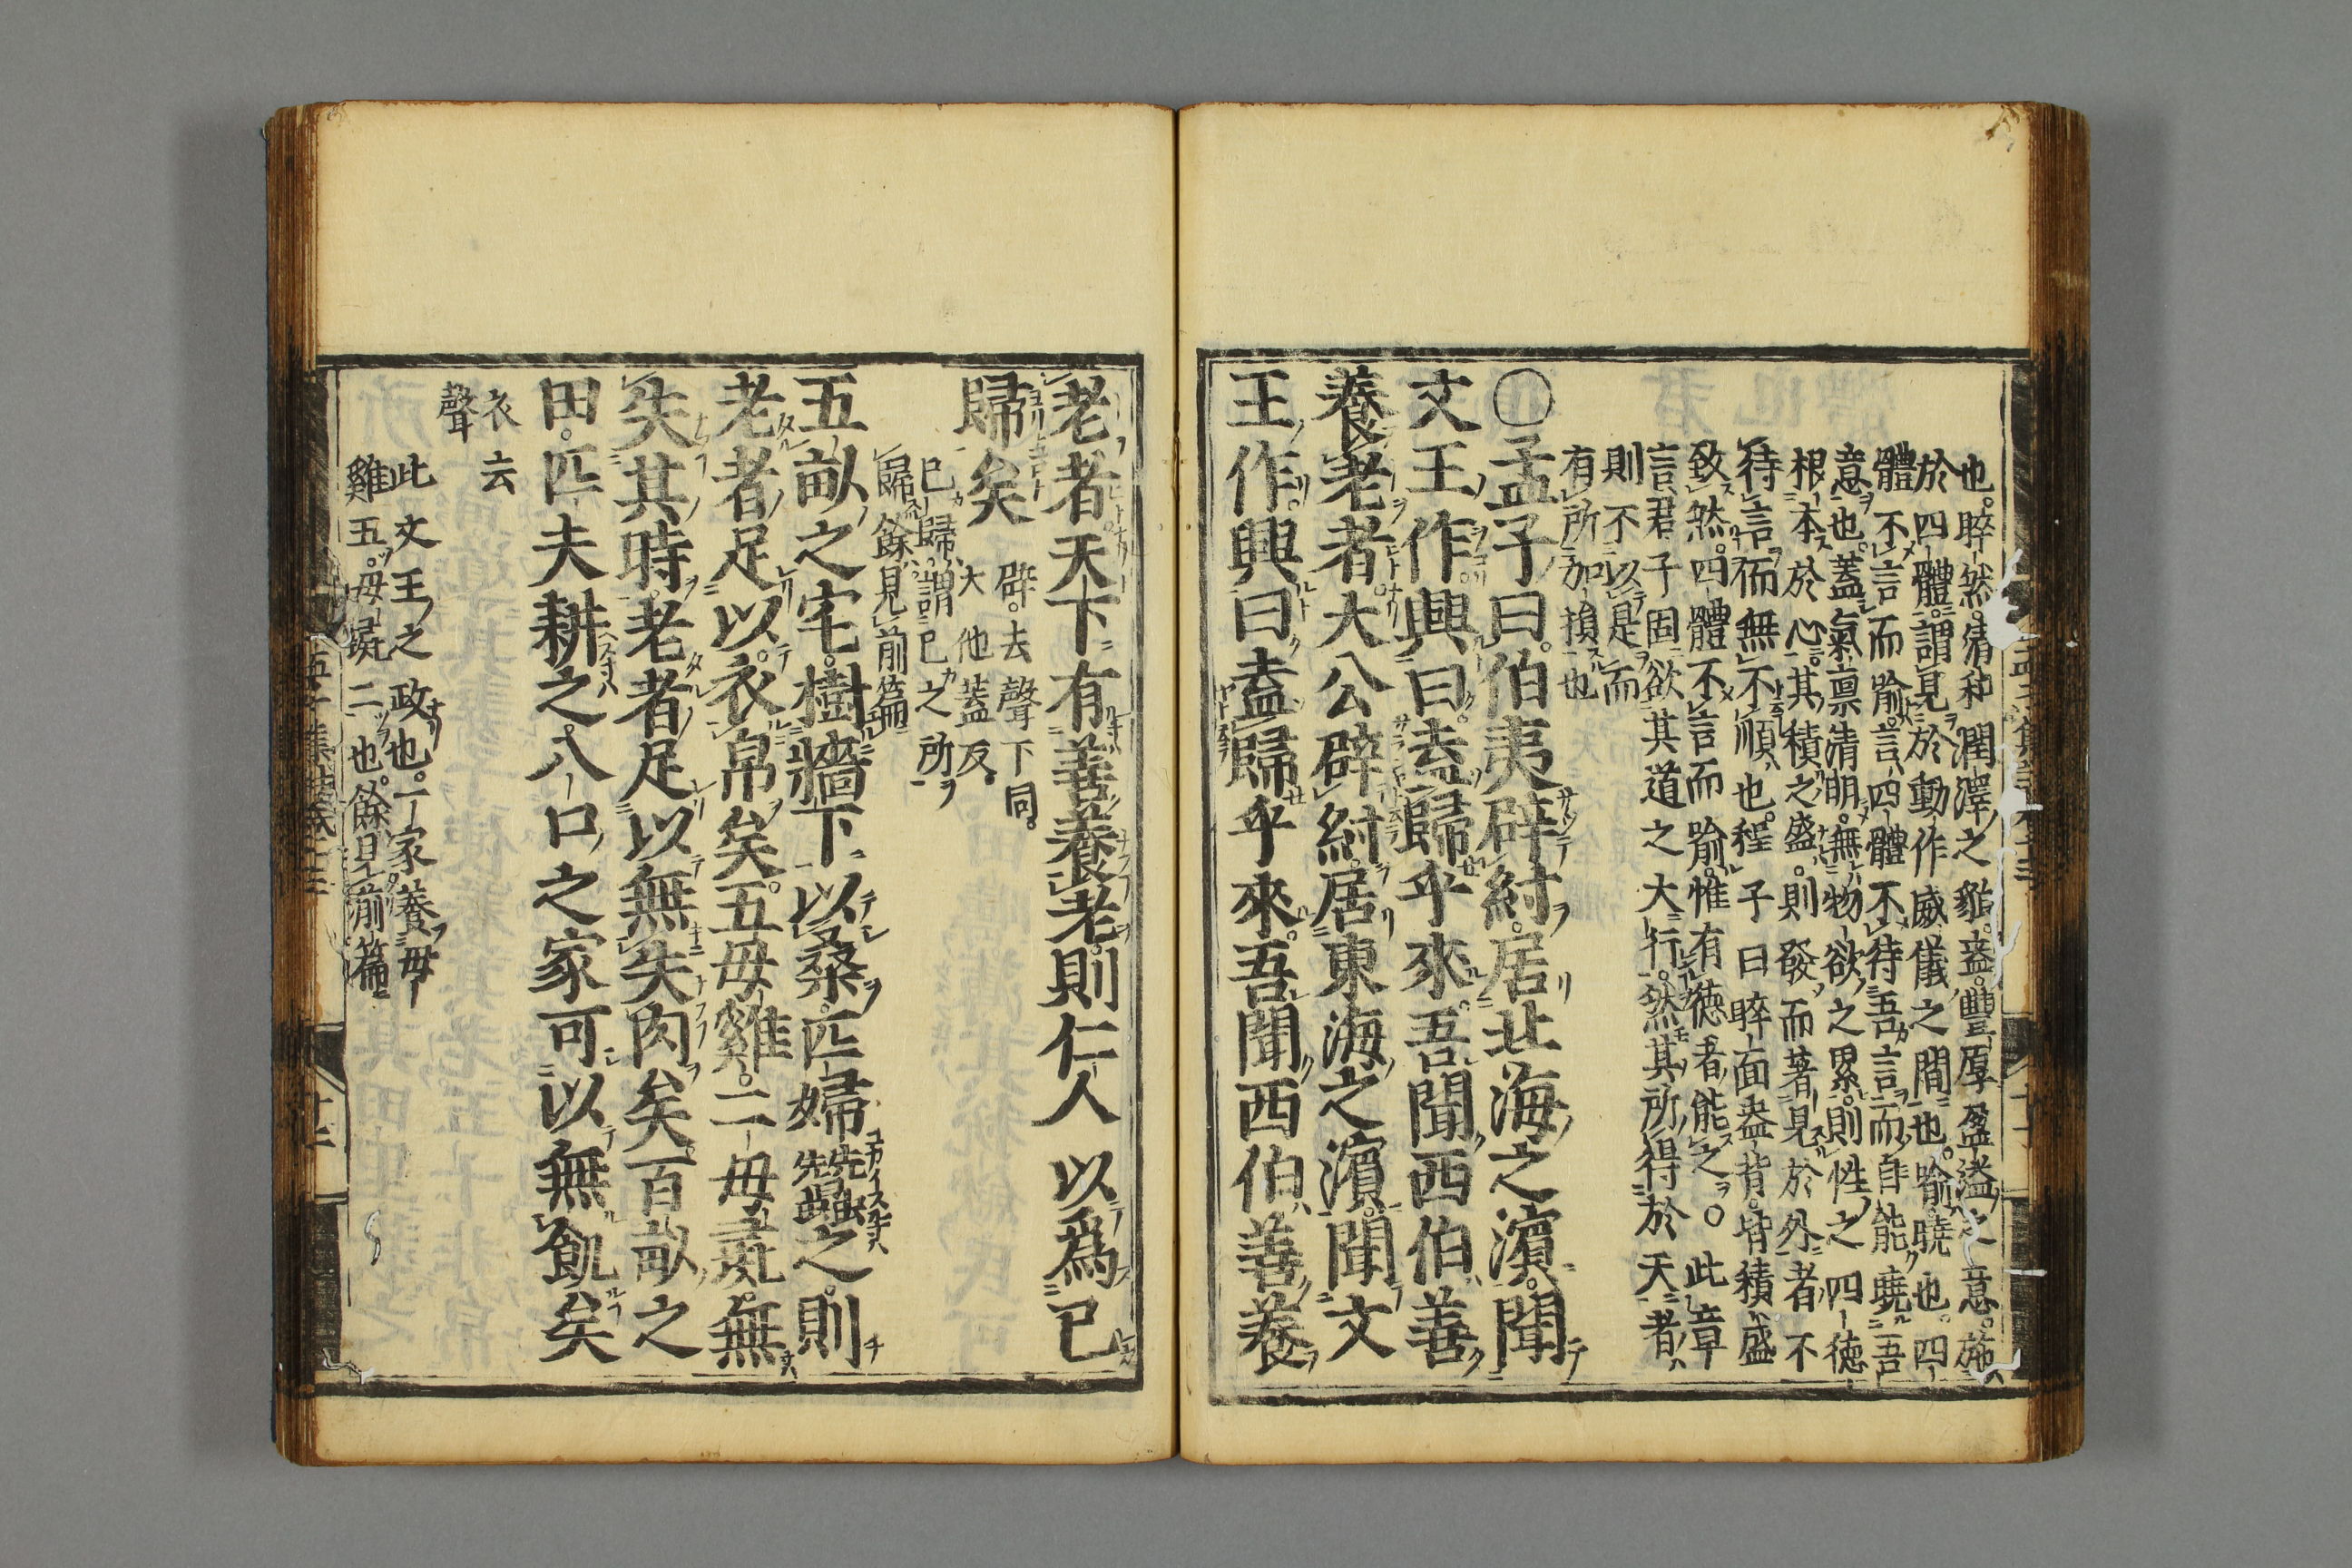 也。睟然。清和潤澤之貌。盎。豐厚盈溢之意。施
於四體。謂見於動作威儀之間也。喩。曉也。四
體不言而喩。言四體不待吾言而自能曉吾
意也。蓋氣禀清明。無物欲之累。則性之四德
根本於心。其積之盛。則發而著見於外者不
待言而無不順也。程子曰睟面盎背。皆積盛
致然。四體不言而喩。惟有德者能之。○此章
言君子固欲其道之大行。然其所得於天者
則不以是而
有所加損也
○孟子曰。伯夷辟紂。居北海之濱。聞
文王作。興曰。盍歸乎來。吾聞西伯善
養老者。大公辟紂。居東海之濱。聞文
王作。興曰盍歸乎來。吾聞西伯善養
老者天下有善養老。則仁人以爲已
歸矣
辟。去聲下同。
大他蓋反。
已歸。謂已之所
歸餘見前篇
五畝之宅。樹牆下以桑。匹婦蠶之。則
老者足以衣帛矣。五母雞。二母彘。無
失其時。老者足以無失肉矣。百畝之
田。匹夫耕之。八口之家可以無飢矣
衣去
聲
此文王之政也。一家養母
雞五。母彘二也。餘見前篇
孟子集註卷十三
十二